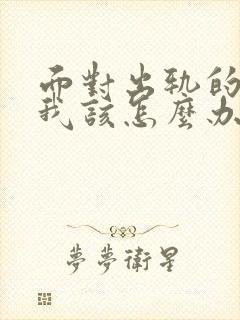 而對出軌的
我該怎麼办
夢夢衛星